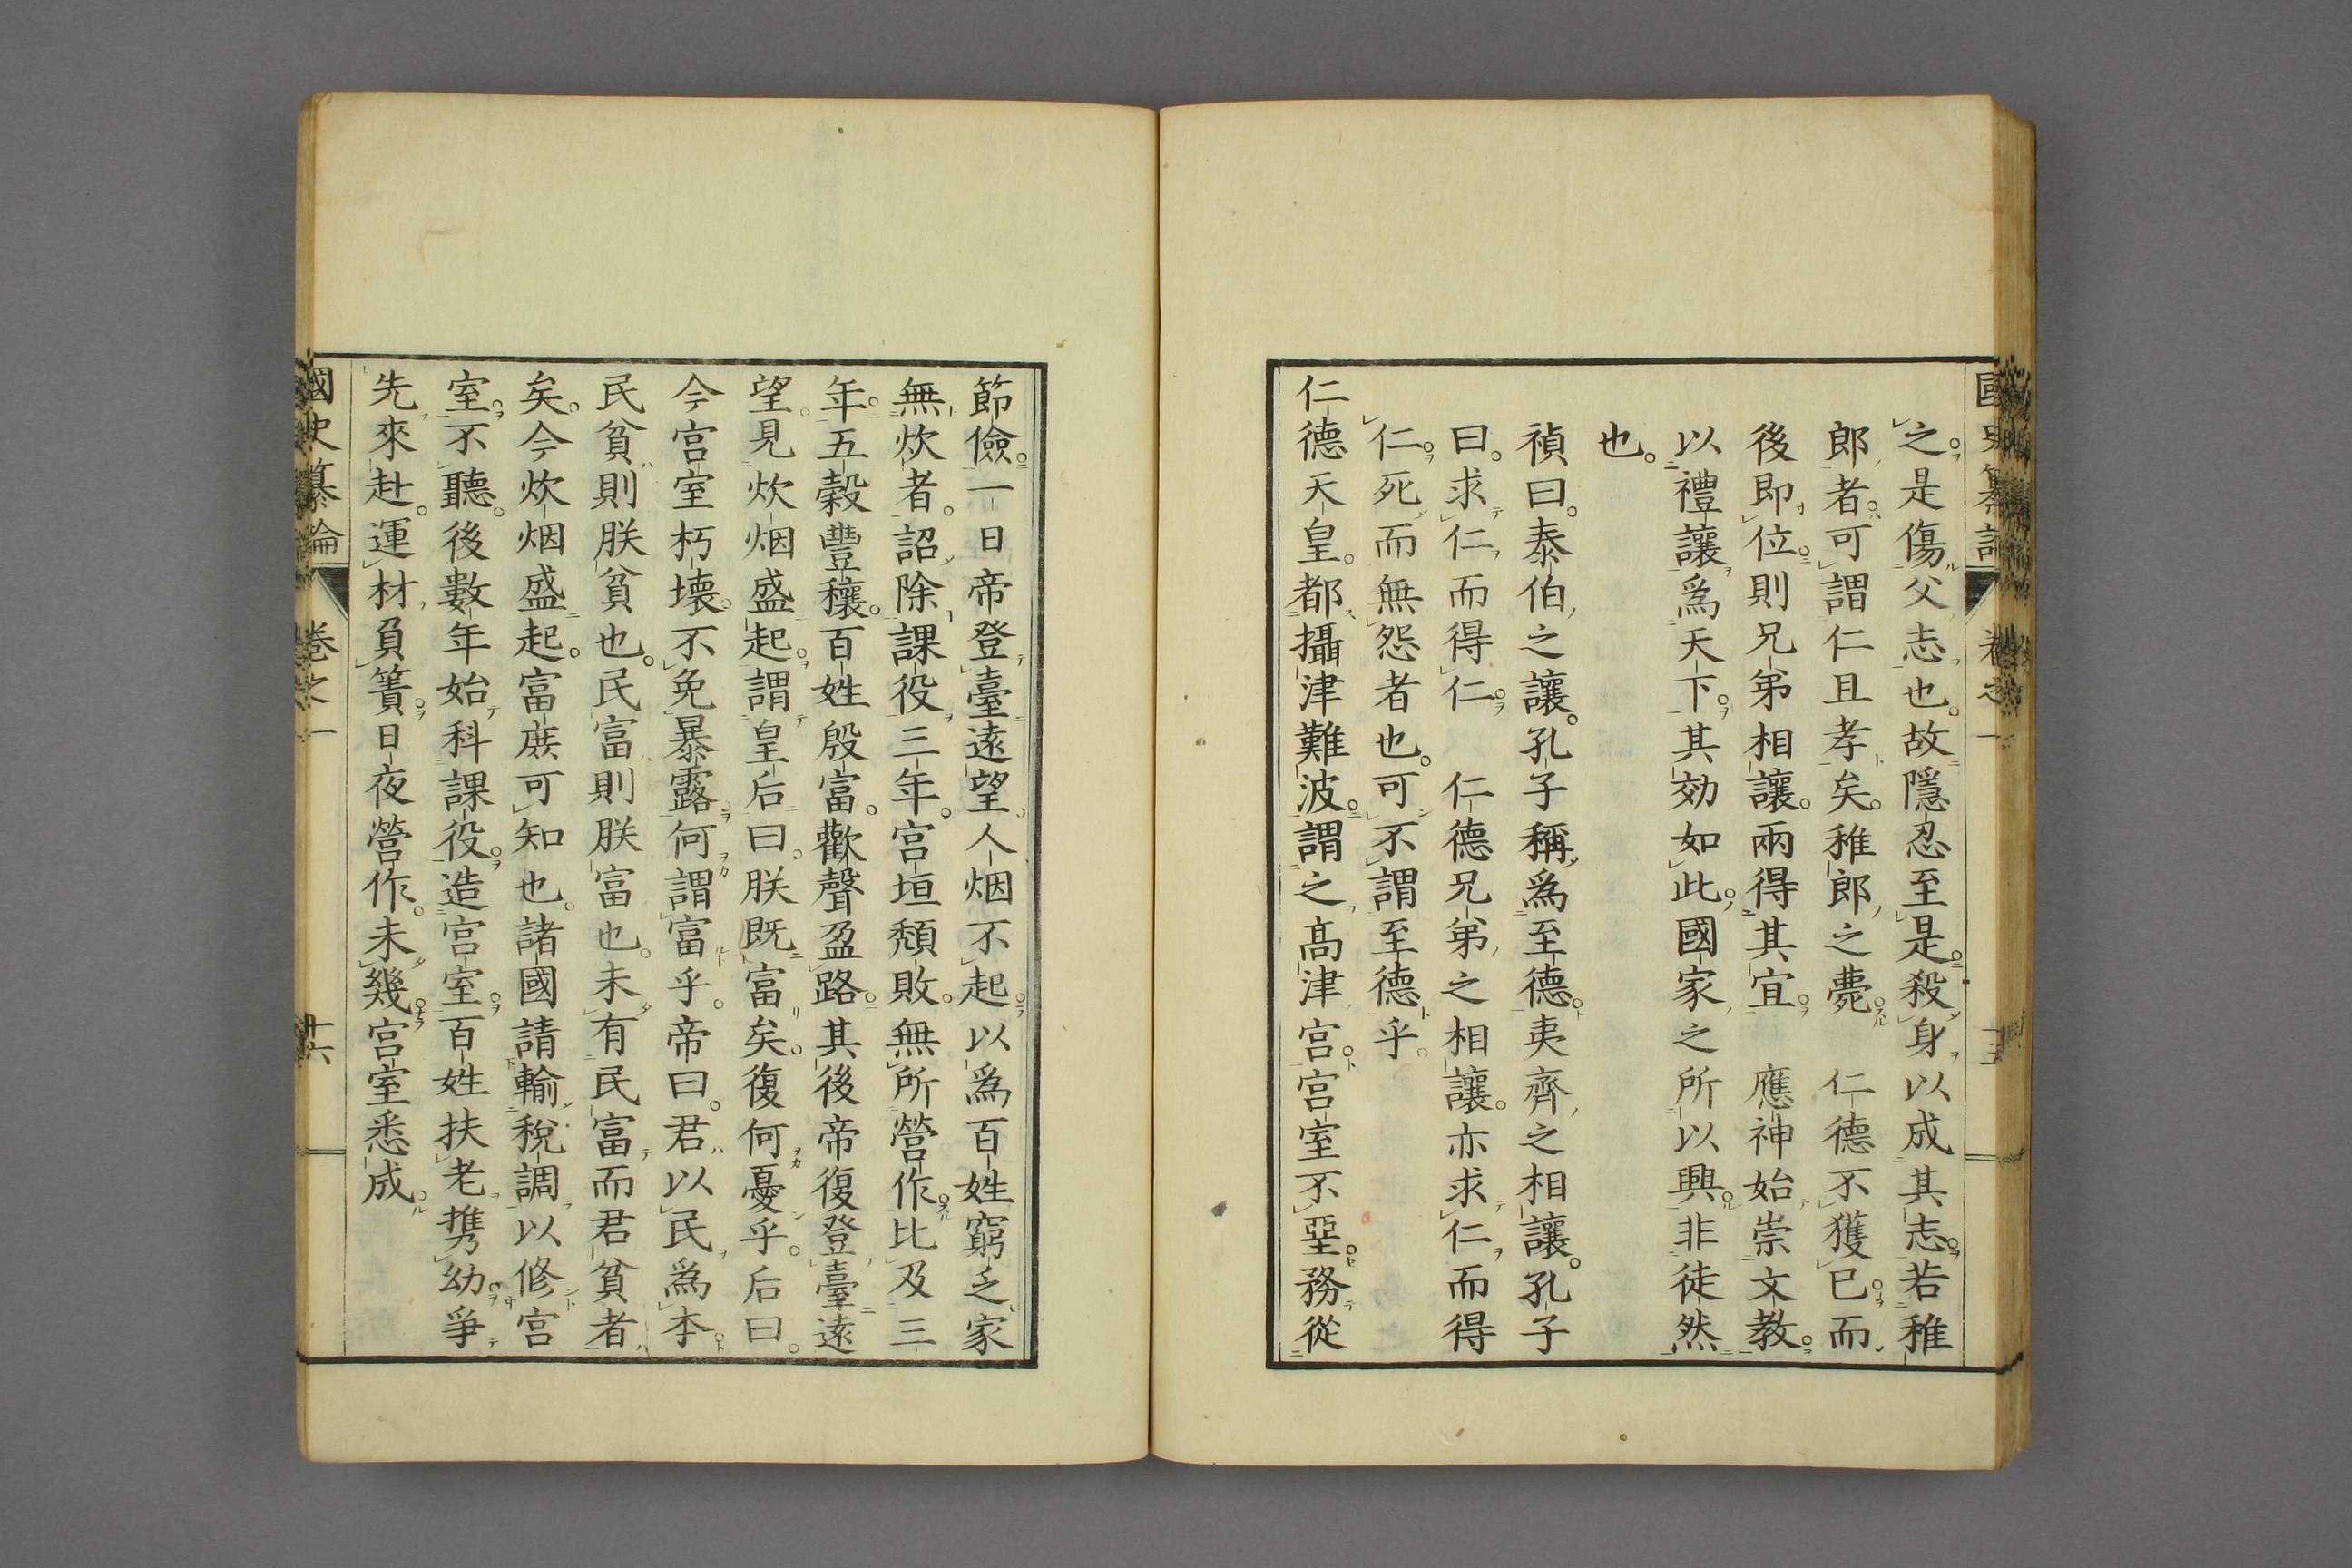 之是傷父志也。故隱忍至是。殺身以成其志。若稚
郎者。可謂仁且孝矣。稚郎之薨。　仁德不獲已。而
後即位。則兄弟相讓。兩得其宜。　應神始崇文教。
以禮讓爲天下。其効如此。國家之所以興。非徒然
也。
禎曰。泰伯之讓。孔子稱爲至德。夷齊之相讓。孔子
曰。求仁而得仁。　仁德兄弟之相讓。亦求仁而得
仁。死而無怨者也。可不謂至德乎。
仁德天皇。都攝津難波。謂之髙津宮。宮室不堊。務從
節儉。一日帝登臺遠望。人烟不起。以爲百姓窮乏、家
無炊者。詔除課役三年。宮垣頽敗。無所營作。比及三
年。五穀豐穰。百姓殷富。歡聲盈路。其後帝復登臺遠
望。見炊烟盛起。謂皇后曰。朕既富矣。復何憂乎。后曰。
今宮室朽壞。不免暴露。何謂富乎。帝曰。君以民爲本。
民貧則朕貧也。民富則朕富也。未有民富而君貧者
矣。今炊烟盛起。富庶可知也。諸國請輸稅調以修宮
室。不聽。後數年始科課役。造宮室。百姓扶老携幼。爭
先來赴。運材負簣。日夜營作。未幾。宮室悉成。
國史纂論　卷之一　十六